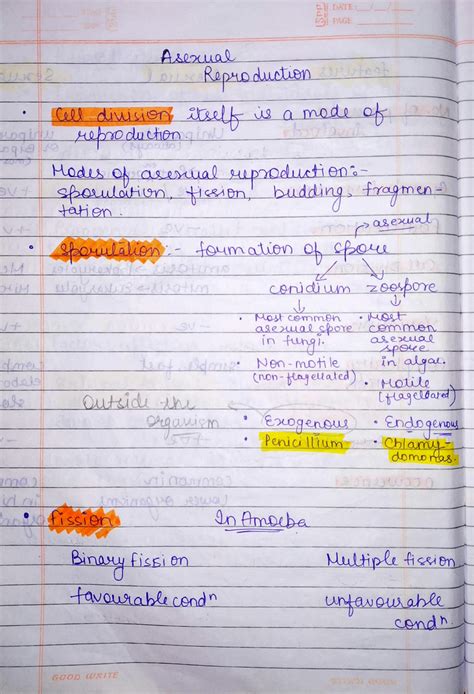 DATE: __/__/__
PAGE
Asexual
Reproduction
• Cell division itself is a mode of
reproduction
Modes of asexual reproduction:-
sporulation, fission, budding, fragmen-
tation.
→ asexual
• Sporulation :- formation of spore
conidium zoospore
• Most common
asexual spore
in fungi.
• Non-motile
(non-flagellated)
• Exogenous
• Penicillium
• Most
common
asexual
spore
in algae.
• Motile
(flagellated)
• Endogenous
• Chlamy-
domonas.
Outside the
organism
• Fission In Amoeba
Binary fission Multiple fission
favourable condn unfavourable
condn
GOOD WRITE